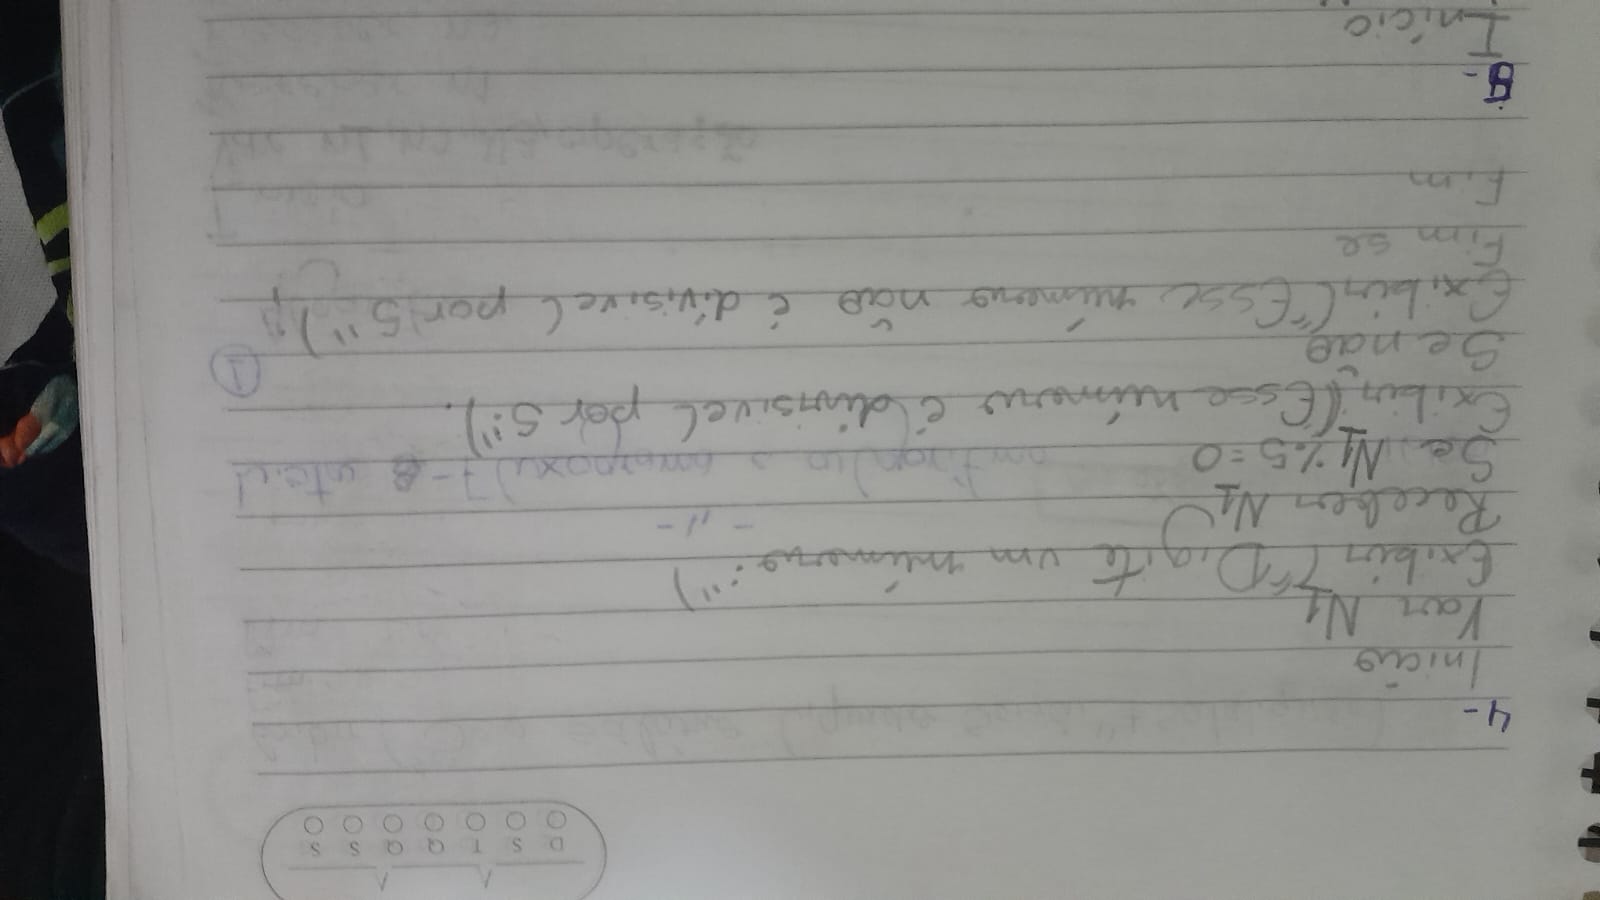 D S T Q Q S S
4-
Inicio
Var N1
Exibir ("Digite um número:")
Receber N1
- " -
Se N1 % 5 = 0
Exibir ("Esse número é divisivel por 5").
Se não
1
Exibir ("Esse número não é divisivel por 5")
Fim se
Fim
Início